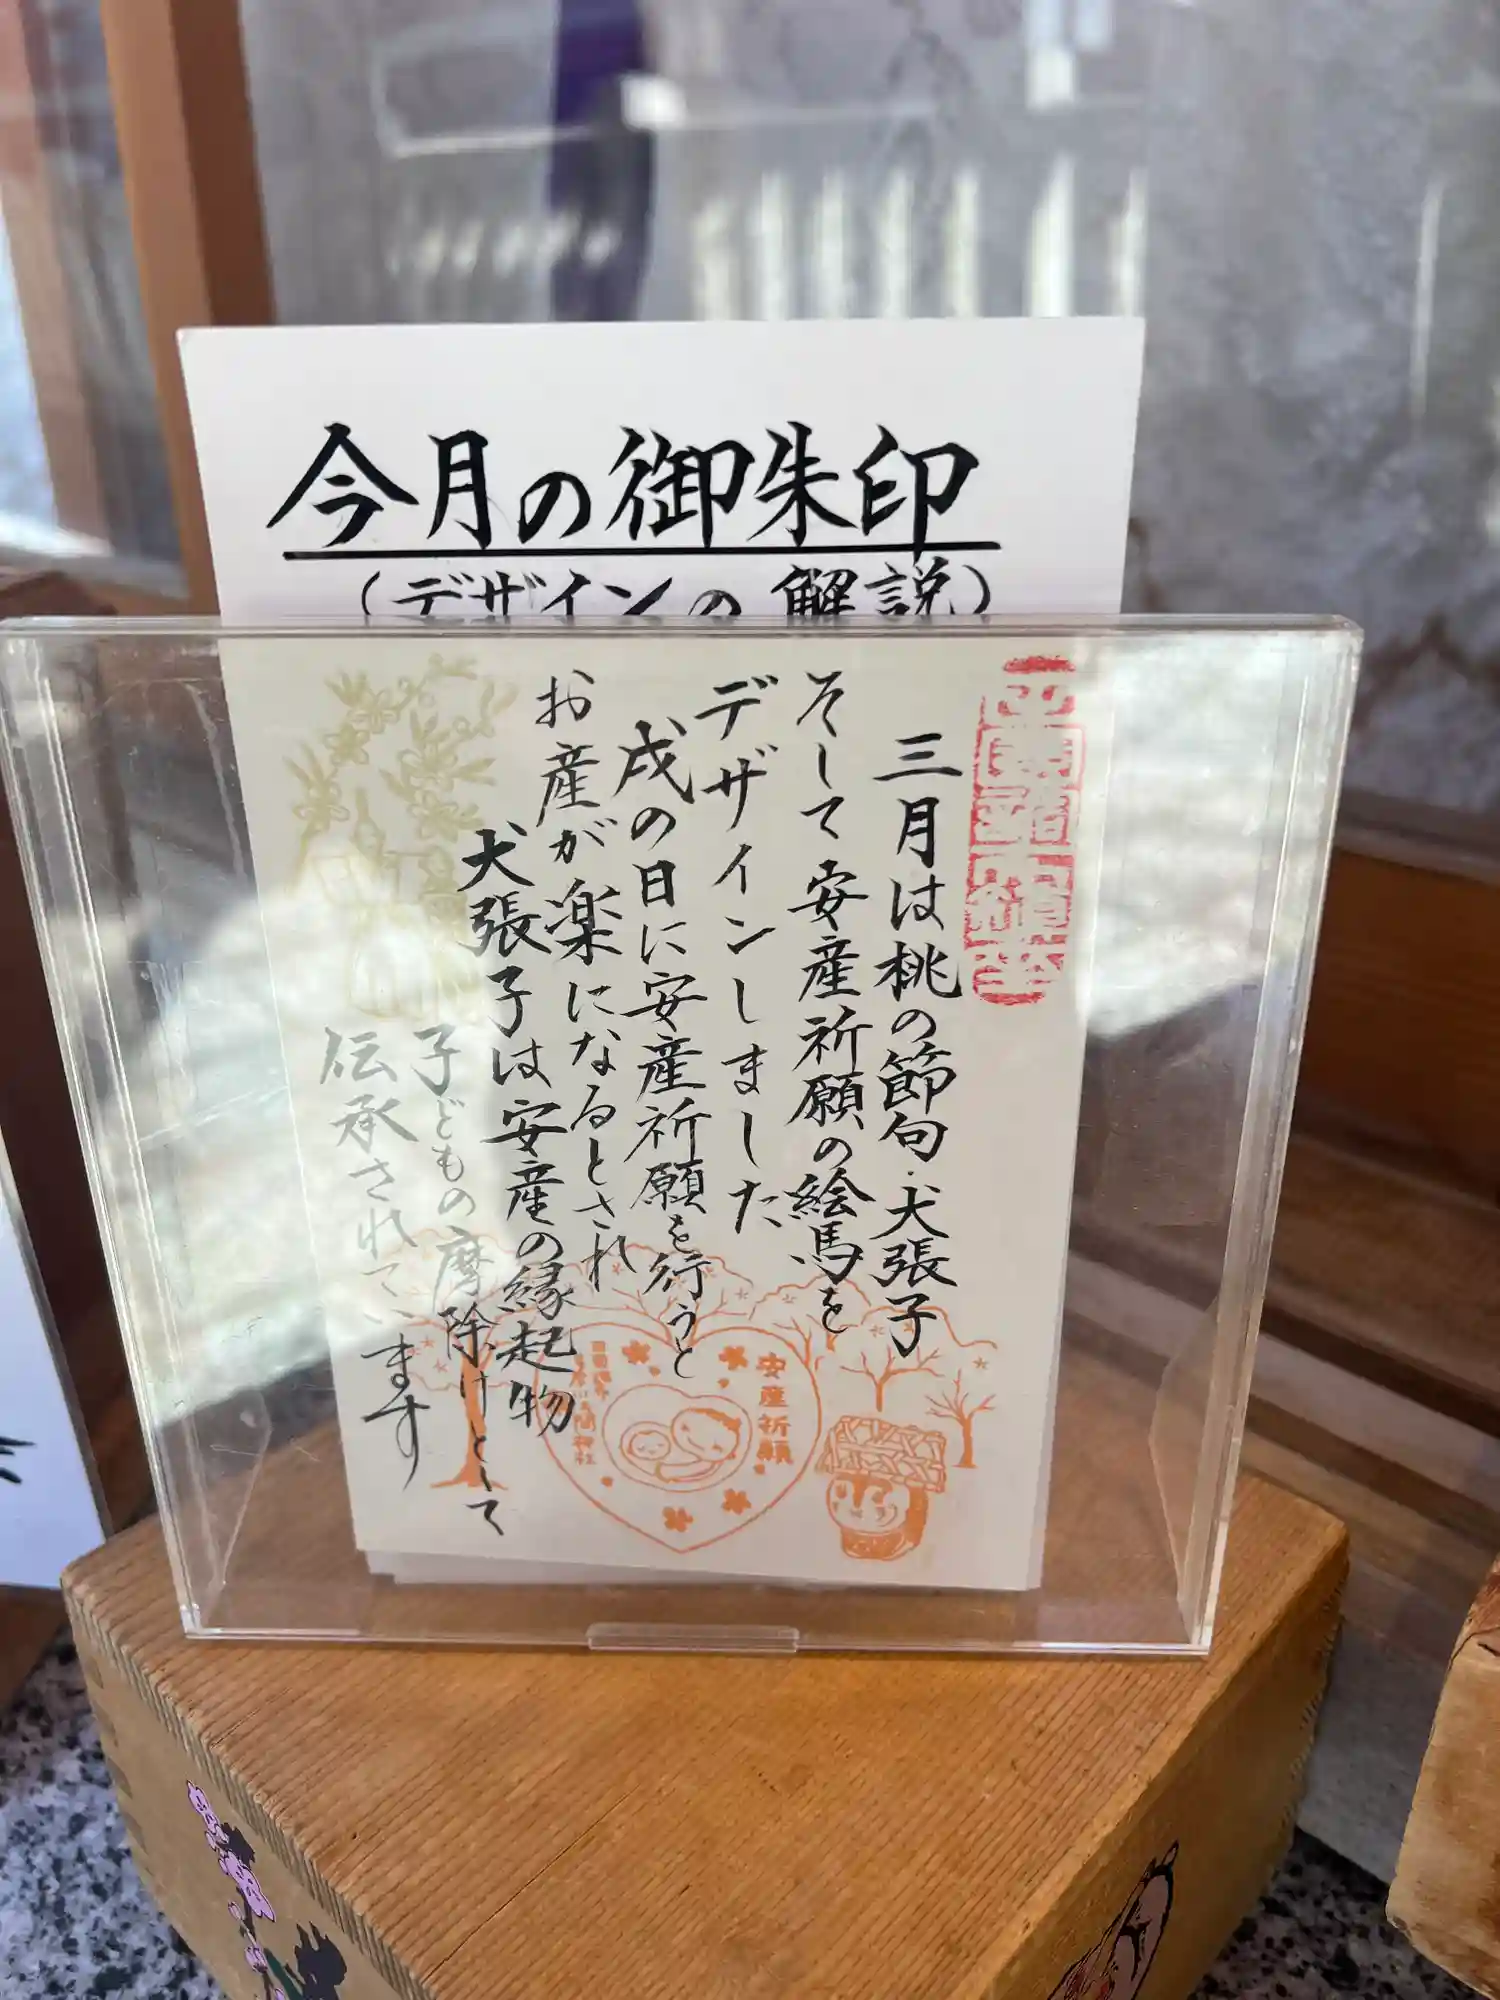 今月の御朱印
(デザインの解説)
三月は桃の節句・犬張子
そして安産祈願の絵馬を
デザインしました
戌の日に安産祈願を行うと
お産が楽になるとされ
犬張子は安産の縁起物
子どもの摩除けとして
伝承されています
安産祈願